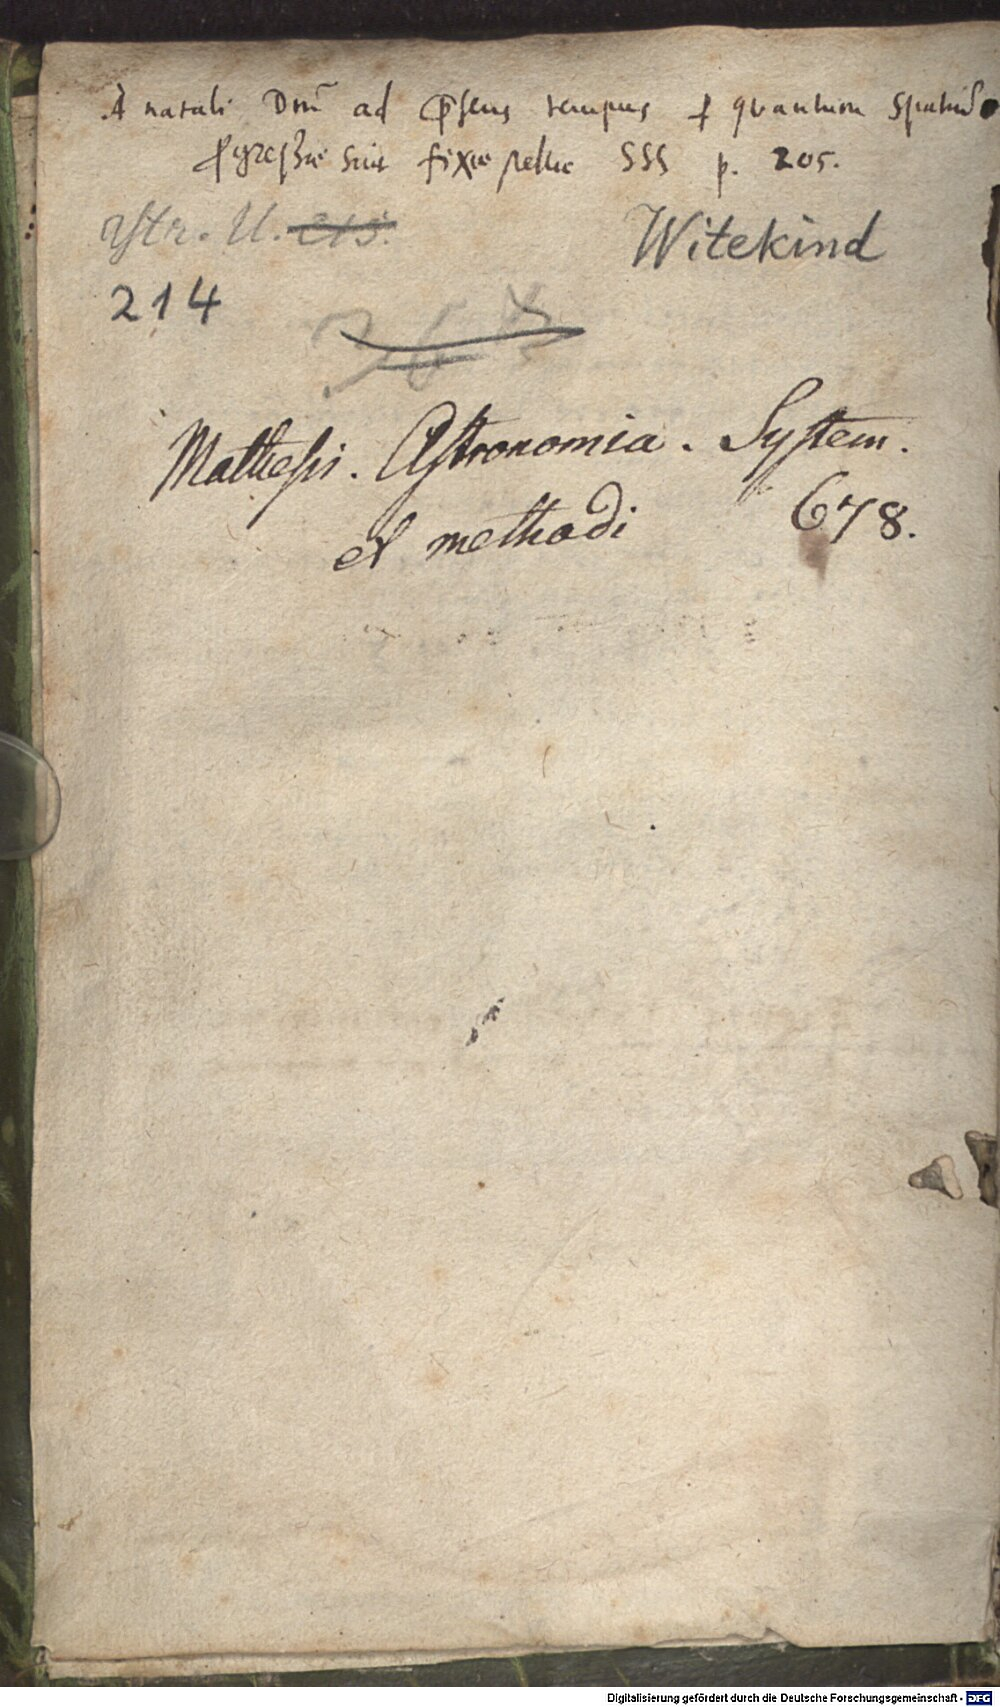 A natali Dnī ad p̄sens tempus ꝑ quantum spatiū
ꝓgressæ sint fixæ stellæ SSS p. 205.
Astr. U. 213.
Witekind
214
Mathesis. Astronomia. System.
et methodi 678.
Digitalisierung gefördert durch die Deutsche Forschungsgemeinschaft - DFG